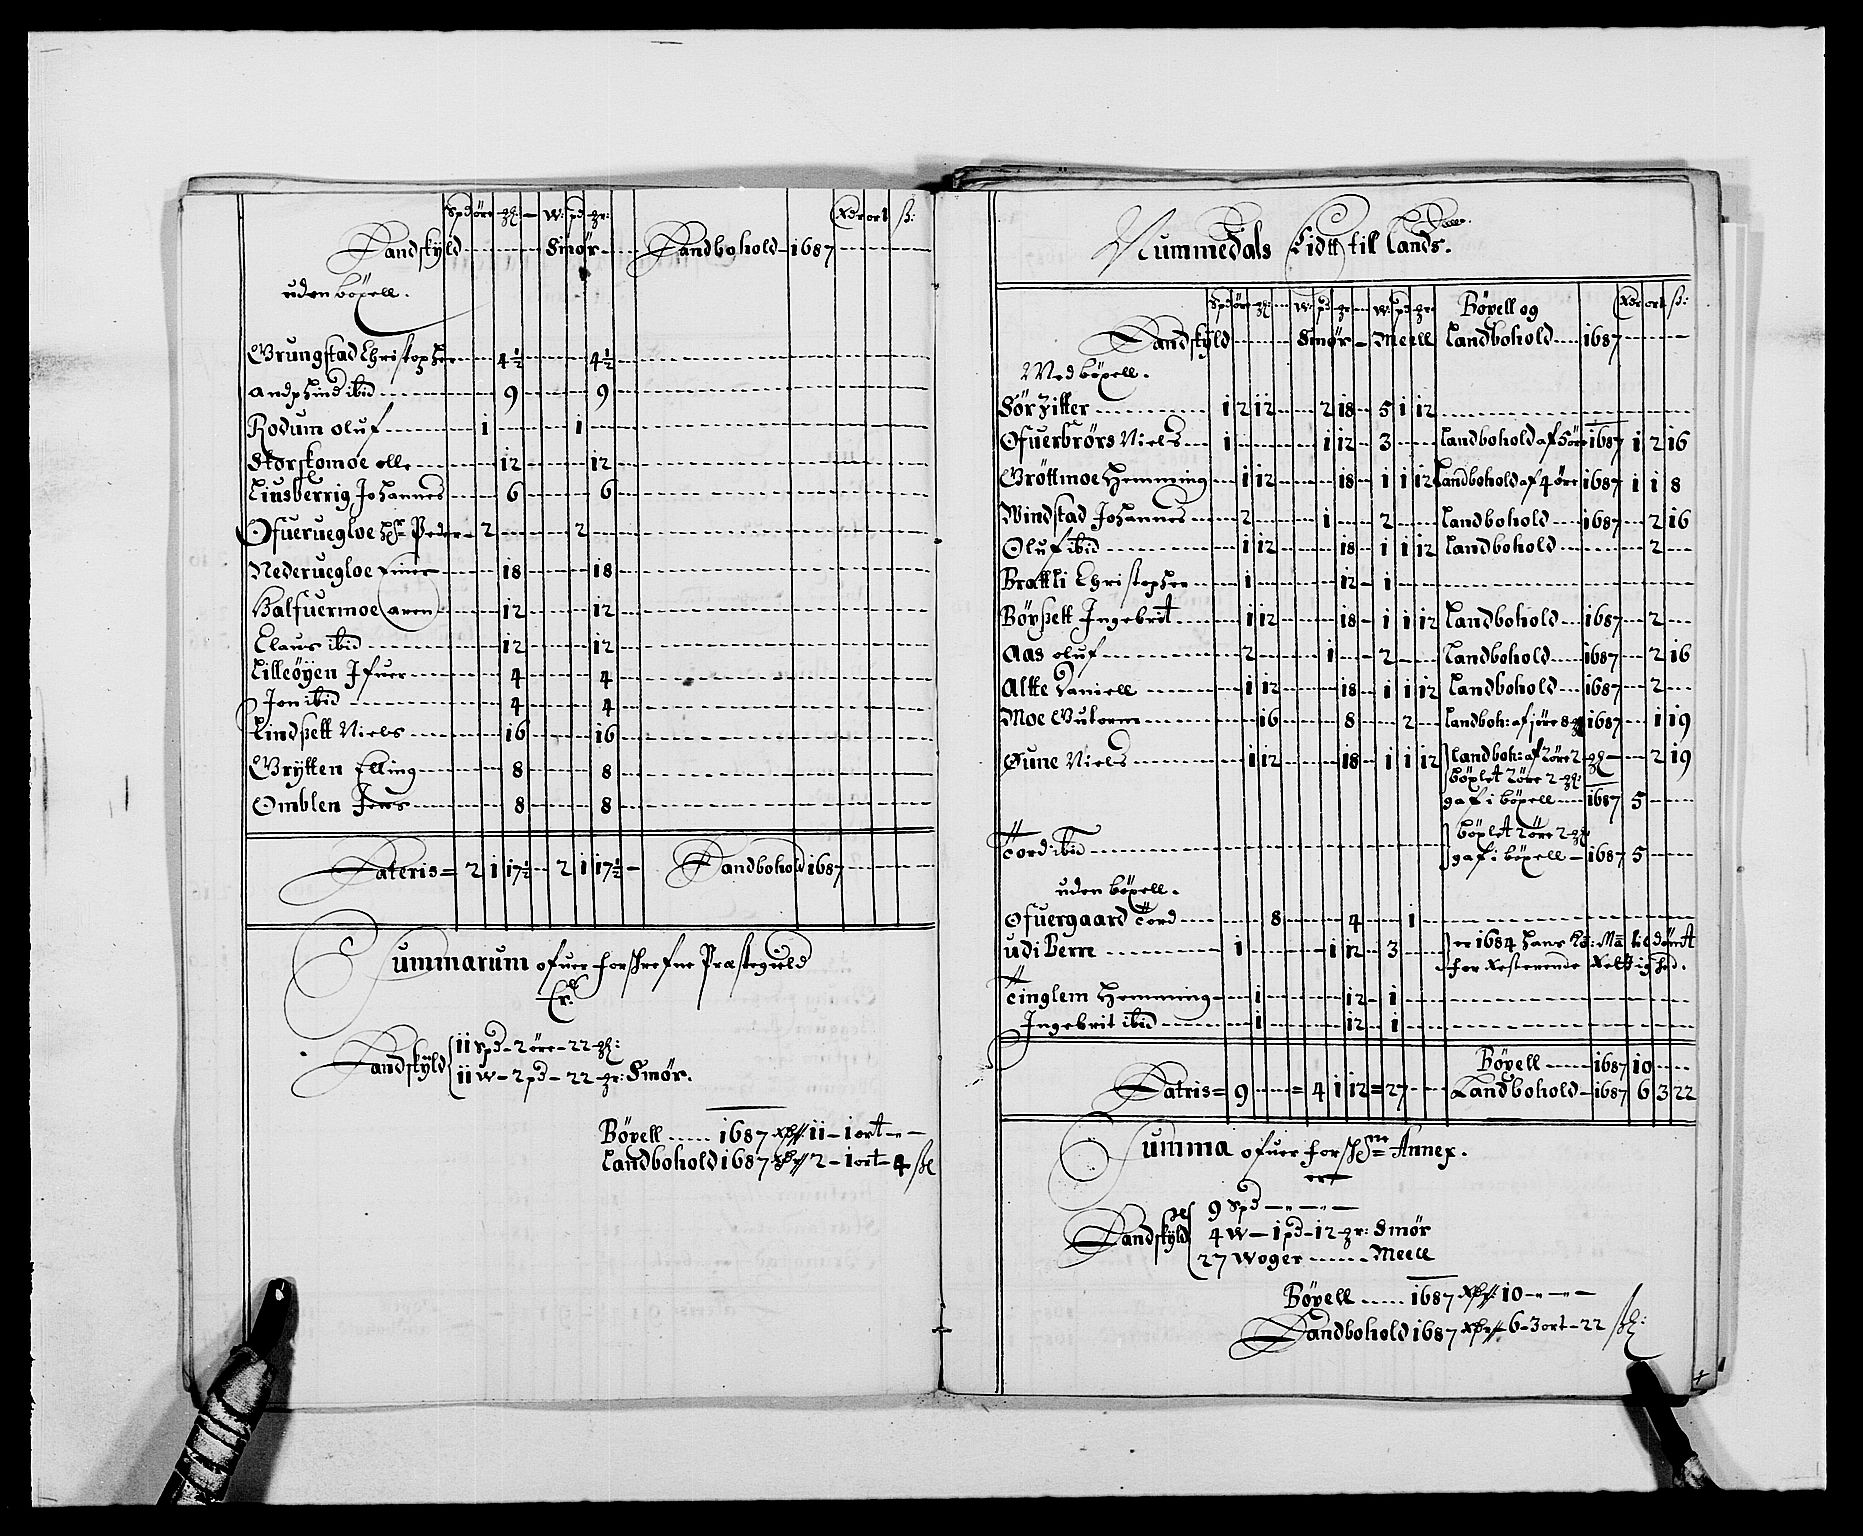 Spd øre gl: — W: pd gr: Rdr ort ß:
Landskyld Smør Landbohold 1687
uden böxell.
Grungstad Christopher 4½ 4½
Andphind ibid 9 9
Rodum oluf 1 1
Storskomoe olle 12 12
Liusberrig Johannes 6 6
Ofueruegloe Hr Peder 2 2
Nederuegloe Einer 18 18
Halfuermoe aren 12 12
Claus ibid 12 12
Lilleöyen Ifuer 4 4
Jon ibid 4 4
Lindsett Niels 16 16
Grytten Elling 8 8
Omblen Jens 8 8
Lateris = 2 1 17½ 2 1 17½ Landbohold 1687
Summarum ofuer forschrefne Præstegield
Er.
Landskyld 11 Spd – 2 öre – 22 gl:
11 W – 2 pd – 22 gr: Smør.
Böxell 1687 11 – 1 ort –
Landbohold 1687 2 – 1 ort – 4 ß
Nummedals Eidtt till Lands.
Spd öre gl: W: pd gr W: pd gr: Böxell og Rdr ort ß:
Landskyld Smør Meell Landbohold 1687
Med böxell.
Sör Zitter 1 2 12 2 18 5 1 12
Ofuerbrörs Niels 1 1 12 3 Landbohold af Söre 1687 1 2 16
Gröttmoe Hemming 1 12 18 1 1 12 Landbohold af 4 öre 1687 1 1 8
Windstad Johannes 2 1 2 Landbohold 1687 2 16
Oluf ibid 1 12 18 1 1 12 Landbohold 2
Brattli Christopher 1 12 1
Böysett Ingebrit 1 12 18 1 1 12 Landbohold 1687 2
Aas oluf 2 1 2 Landbohold 1687 2 16
Altte Daniell 1 12 18 1 1 12 Landbohold 1687 2
Moe Gutorm 16 8 2 Landboh: af 1 öre 8 gl 1687 1 19
Øune Niels 1 12 18 1 1 12 Landboh: af 2 öre 2 gl 2 19
böxlet 2 öre 2 gl:
gaf i böxell 1687 5
Tord ibid böxlet 2 öre 2 gl
gaf i böxell 1687 5
uden böxell.
Ofuergaard Tord 8 4 1
udi Berre 1 1 12 3 er 1684 hans Ko: Ma: tildömt
for Resterende Rettighed.
Tinglem Hemming 1 12 1
Ingebrit ibid 1 12 1
Böxell 1687 10
Latris = 9 = 4 1 12 = 27 Landbohold 1687 6 3 22
Summa ofuer forschne Annex.
er
Landskyld 9 Spd
4 W – 1 pd – 12 gr: Smør
27 Woger Meell
Böxell 1687 10
Landbohold 1687 6 – 3 ort – 22 ß: